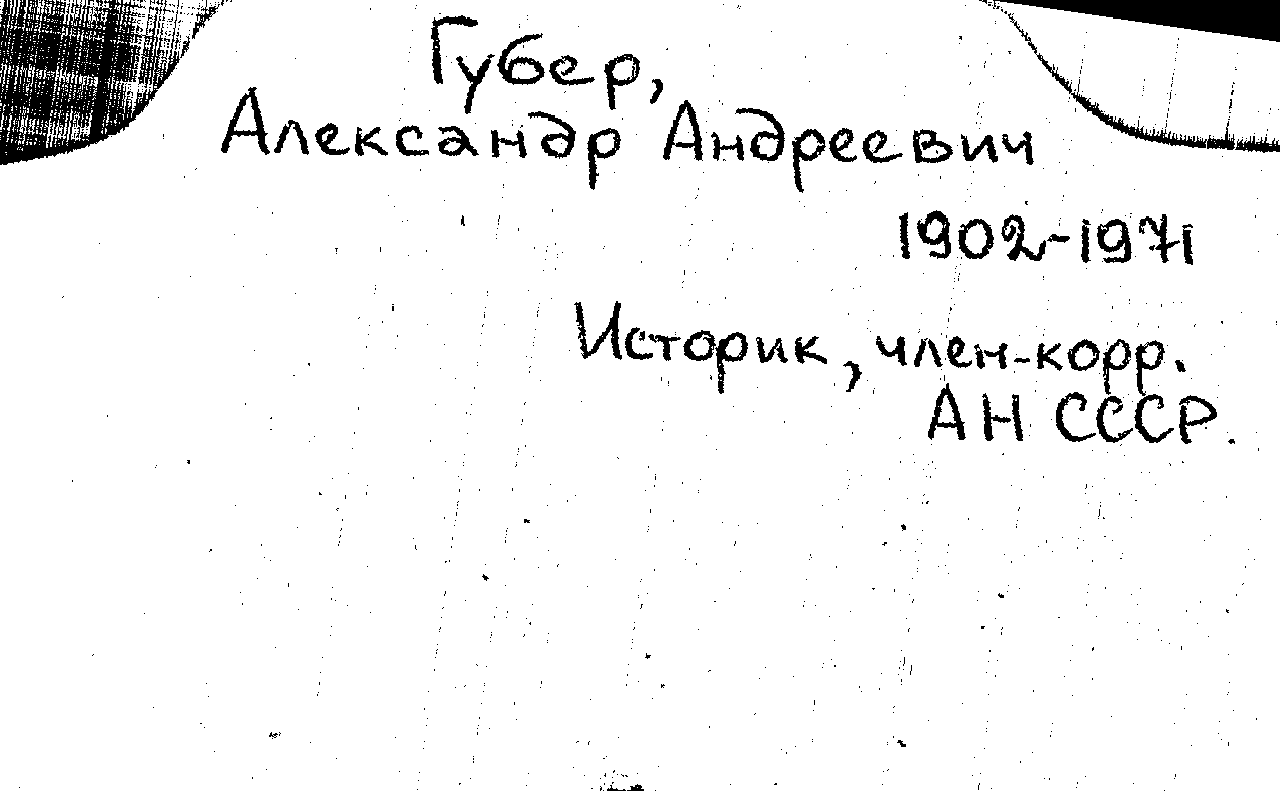 Губер,
Александр Андреевич
1902-1971
Историк, член-корр.
АН СССР.